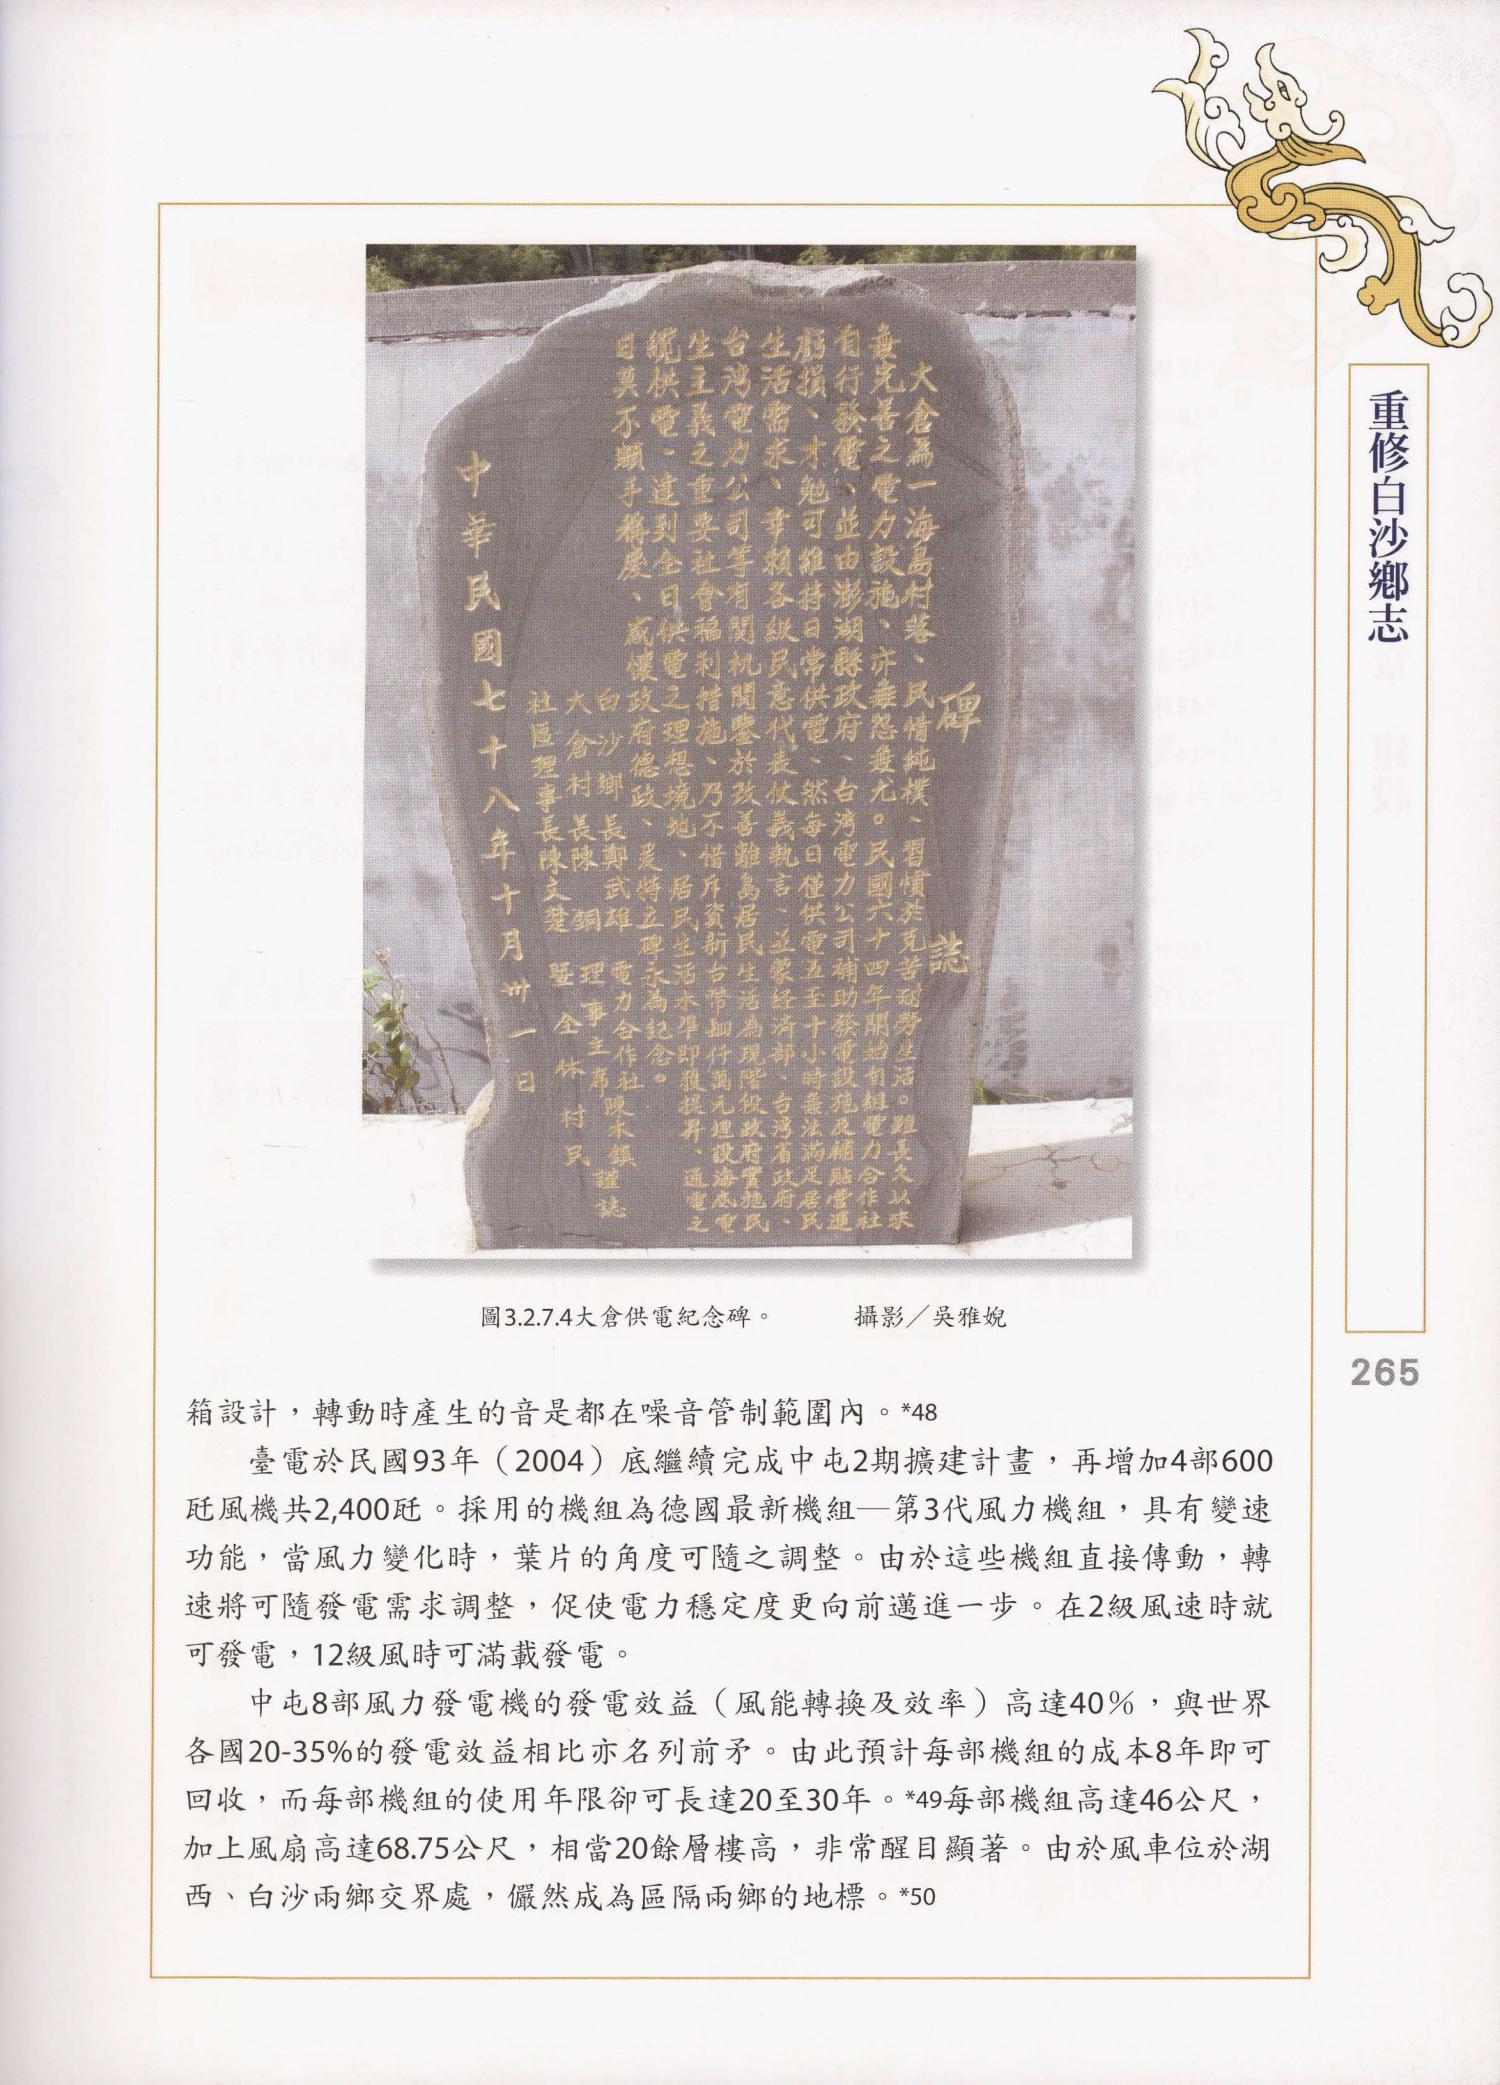 重修白沙鄉志
碑誌
大倉為一海島村落、民情純樸、習慣於克苦耐勞生活。雖長久以來
無完善之電力設施、亦無怨無尤。民國六十四年開始自組電力合作社
自行發電、並由澎湖縣政府、台湾電力公司補助發電設施及補貼營運
虧損、才勉可維持日常供電、然每日僅供電五至十小時無法滿足居民
生活需求、幸賴各級民意代表仗義執言、並蒙经济部、台湾省政府、
台湾電力公司等有関机関鑒於改善離島居民生活為現階段政府實施民
生主義之重要社會福利措施、乃不惜斥資新台幣仟萬元埋設海底電
纜供電、達到全日供電之理想境地、居民生活水準即獲提昇、通電之
日莫不額手稱慶、感懷政府德政、爰特立碑永為紀念。
白沙鄉長鄭武雄 電力合作社
大倉村長陳銅 理事主席陳木鎮 謹誌
社區理事長陳文楚 暨全体村民
中華民國七十八年十月卅一日
圖3.2.7.4大倉供電紀念碑。 攝影／吳雅婗
265
箱設計，轉動時產生的音是都在噪音管制範圍內。*48
臺電於民國93年（2004）底繼續完成中屯2期擴建計畫，再增加4部600
瓩風機共2,400瓩。採用的機組為德國最新機組—第3代風力機組，具有變速
功能，當風力變化時，葉片的角度可隨之調整。由於這些機組直接傳動，轉
速將可隨發電需求調整，促使電力穩定度更向前邁進一步。在2級風速時就
可發電，12級風時可滿載發電。
中屯8部風力發電機的發電效益（風能轉換及效率）高達40%，與世界
各國20-35%的發電效益相比亦名列前矛。由此預計每部機組的成本8年即可
回收，而每部機組的使用年限卻可長達20至30年。*49每部機組高達46公尺，
加上風扇高達68.75公尺，相當20餘層樓高，非常醒目顯著。由於風車位於湖
西、白沙兩鄉交界處，儼然成為區隔兩鄉的地標。*50